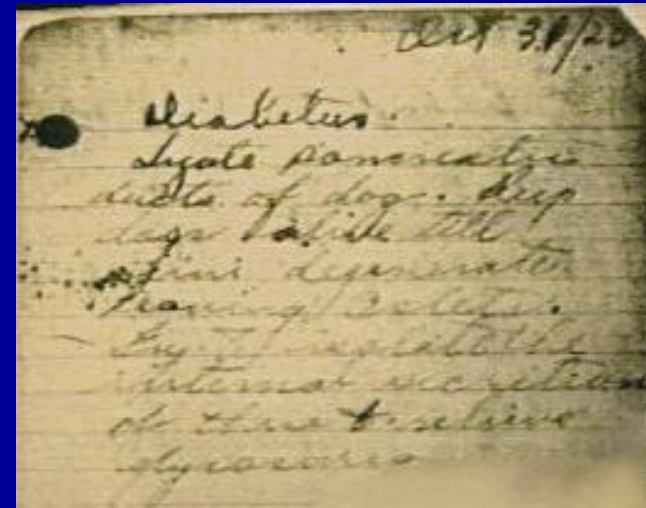 Oct 31/20
Diabetus.
Ligate pancreatic
ducts of dog. Keep
dogs alive till
acini degenerate
leaving Islets.
Try to isolate the
internal secretion
of these & relieve
glycosurea